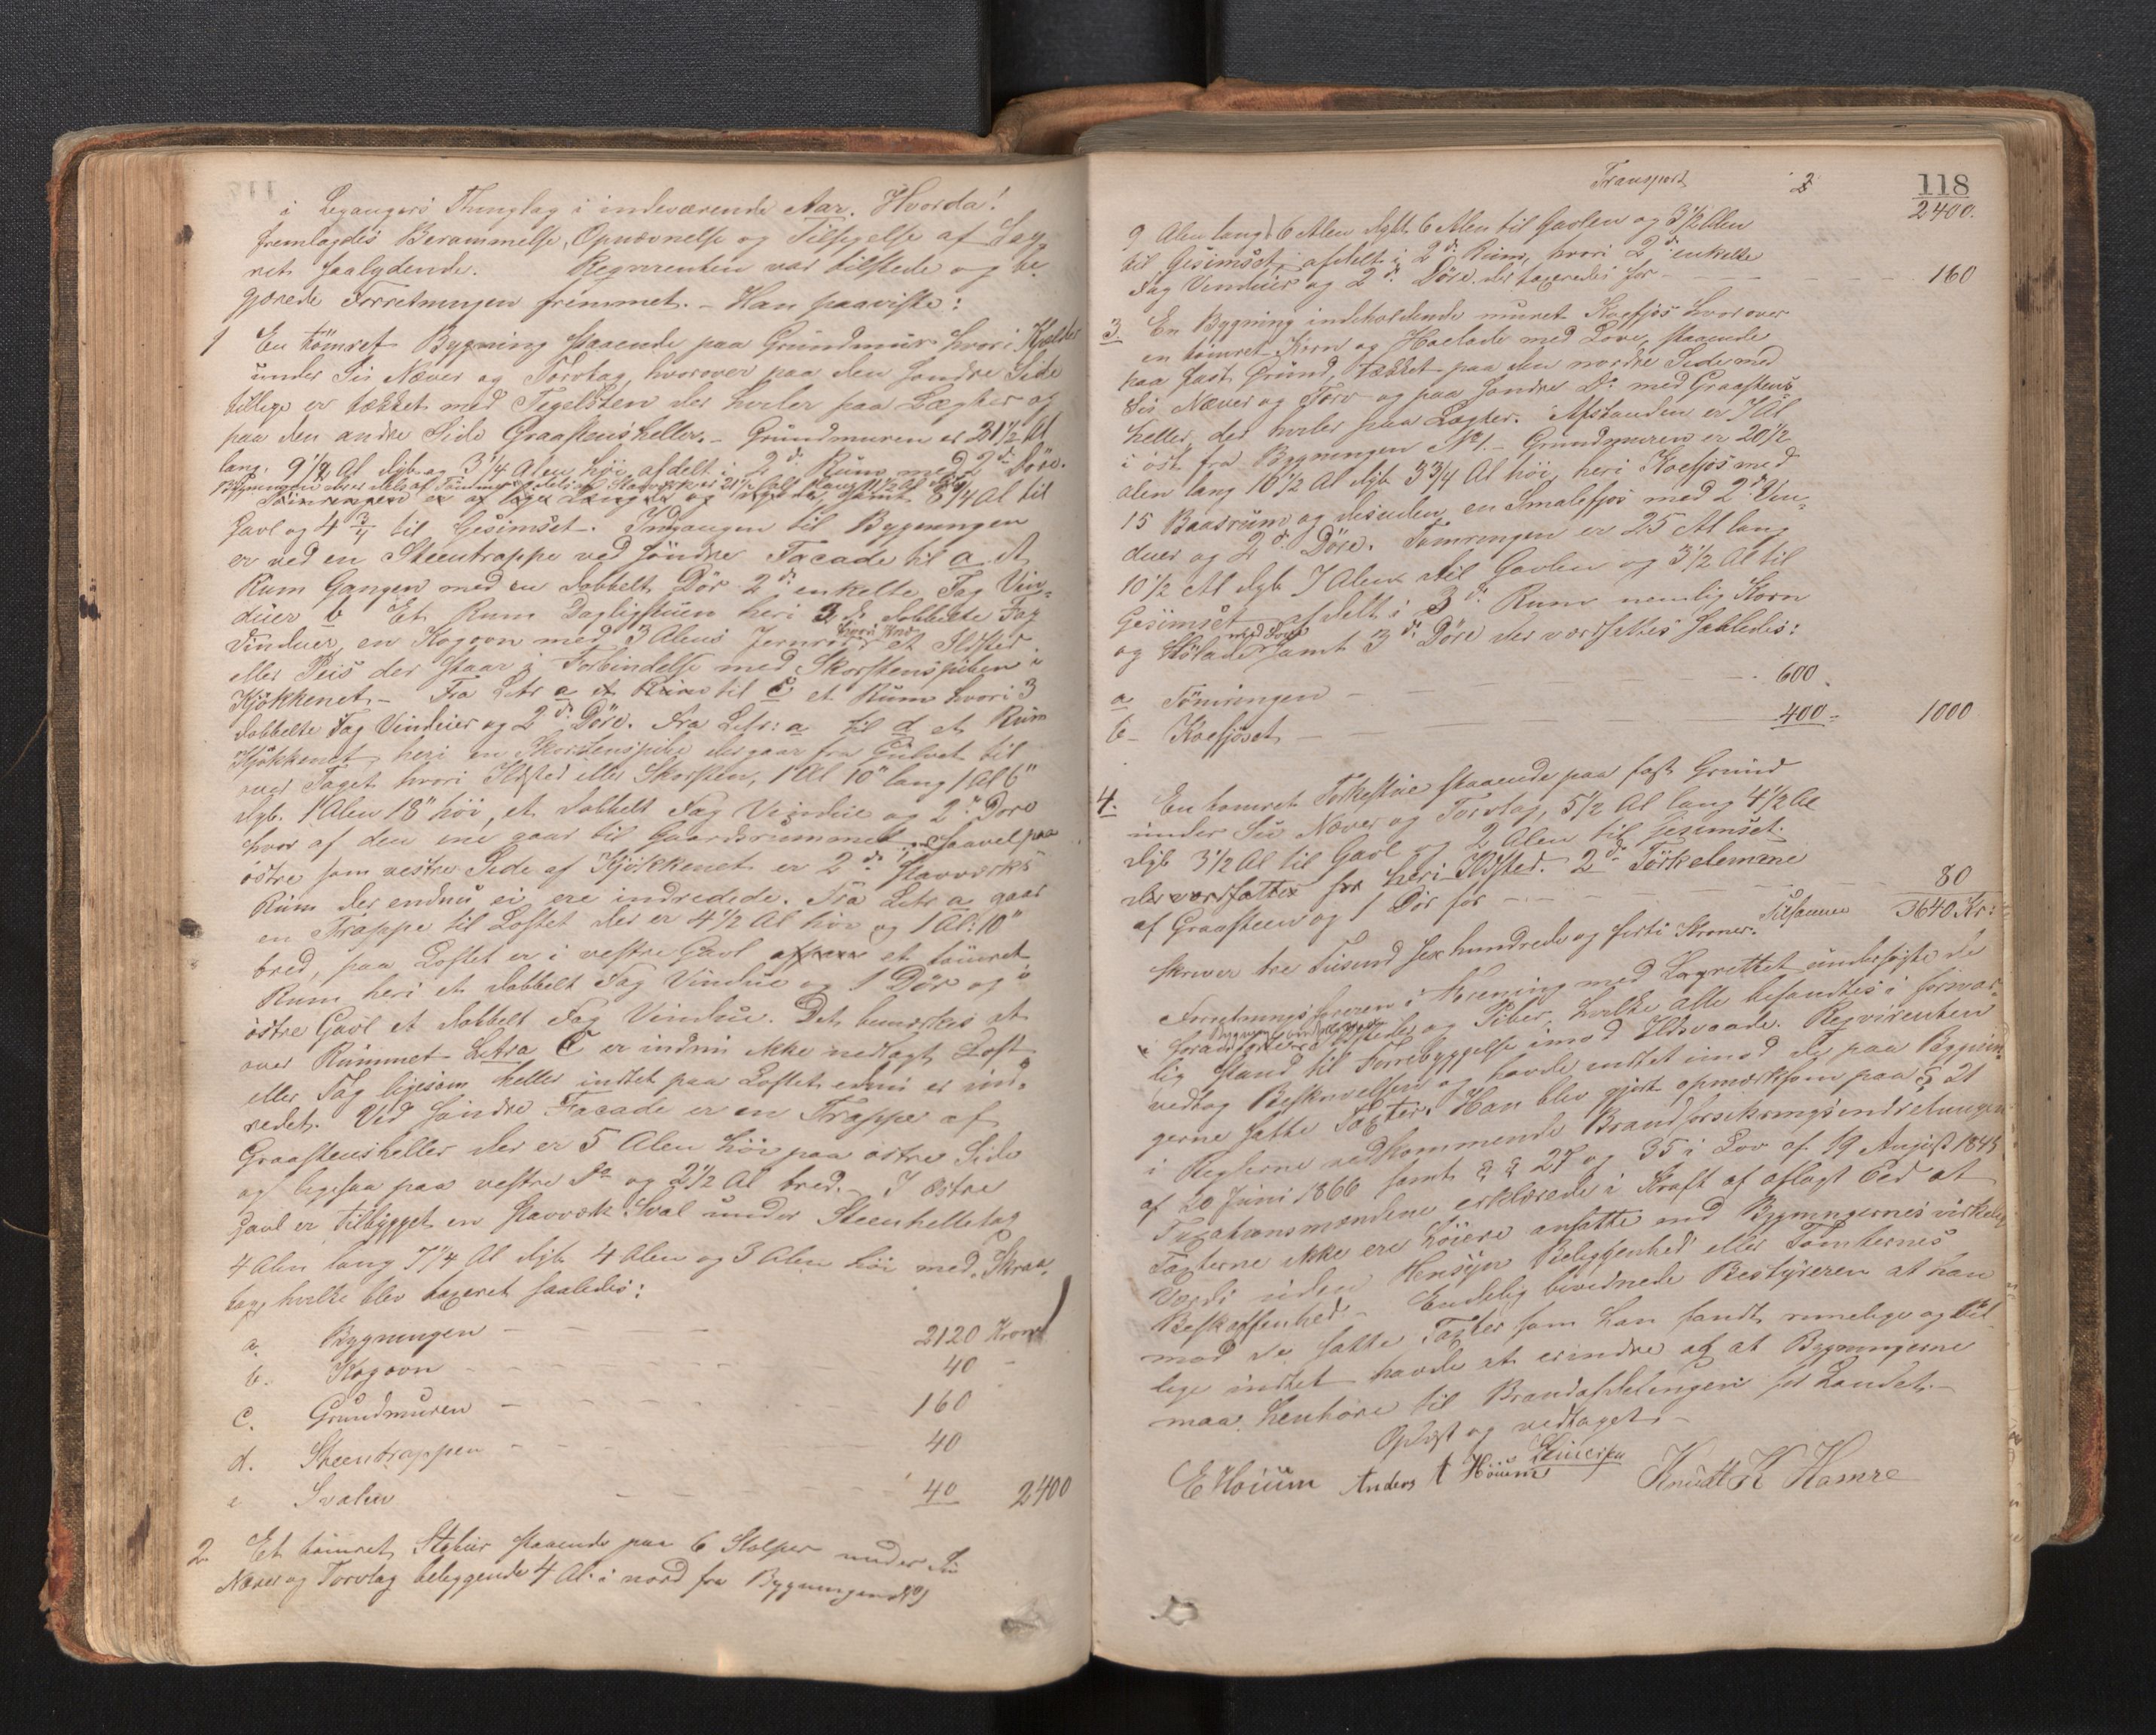 i Leganger Thinglag i indeværende Aar. Hvorda!
fremlagdes Berammelse, Opnævnelse og Tilsigelse af Lag¬
ret saalydende. Reqvirenten var tilstede og be¬
gjærede Forretningen fremmet. – Han paaviste:
1 En tømret Bygning staaende paa Grundmur hvori Kjelder
under Sis Næver og Torvtag, hvorover paa den søndre Side
tillige er tækket med Tegelsten der hviler paa Lægter og
paa den andre Side Graastensheller. – Grundmuren er 21 1/2 Al
lang, 9 1/8 Al dyb og 3 1/4 Alen høi, afdelt i 2de Rum med 2de Døre.
Gavl og 4 3/4 til Gesimset. Indgangen til Bygningen
er ved en Steentrappe ved søndre Facade til a. Et
Rum Gangen med en dobbelt Dør 2de enkelte Fag Vin¬
duer b Et Rum Dagligstuen heri 3de dobbelte Fag
Vinduer, en Kogovn med 3 Alens Jernrør et Ildsted
eller Peis der staar i Forbindelse med Skorstenspiben i
Kjøkkenet. – Fra Litr a til C et Rum hvori 3
dobbelte Fag Vinduer og 2de Døre. Fra Litr: a til d et Rum
Kjøkkenet, heri en Skorstenspibe der gaar fra Gulvet til
over Taget hvori Ildsted eller Skorsten, 1 Al 10" lang 1 Al 6"
dyb. 1 Alen 18" høi, et dobbelt Fag Vindue og 2de Døre
hvor af den ene gaar til Gaardsrummet. Saavel paa
østre som vestre Side af Kjøkkenet er 2de Stavværks
Rum der endnu ei ere indredede. Fra Litr a gaar
en Trappe til Loftet der er 4 1/2 Al høi og 1 Al: 10"
bred, paa Loftet er i vestre Gavl et tømret
Rum heri et dobbelt Fag Vindue og 1 Dør og i
østre Gavl et dobbelt Fag Vindue. Det bemærkes at
over Rummet Litra C er endnu ikke nedlagt Loft
eller Tag ligesom heller intet paa Loftet endnu er ind¬
redet. Ved søndre Facade er en Trappe af
Graastensheller der er 5 Alen høi paa østre Side
og ligesaa paa vestre Do og 2 1/2 Al bred. – I østre
Gavl er tilbygget en Stavværk Sval under Steenhelletag
4 Alen lang 7 1/4 Al dyb 4 Alen og 3 Alen høi med Skraa¬
tag, hvilke blev taxeret saaledes:
a. Bygningen – – – 2120 Kroner
b. Kogovn – – – 40 –
C. Grundmuren – – – 160
d. Steentrappen – – – 40
e Svalen – – – 40 2400
2 Et tømret Stabur staaende paa 6 Stolper under Sis
Næver og Torvtag beliggende 4 Al. i nord fra Bygningen No 1
118
Transport 2400.
9 Alen lang 6 Alen dybt 6 Alen til Gavlen og 3 1/2 Alen
til Gesimset, afdelt i 2de Rum, hvori 2de enkelte
Fag Vinduer og 2de Døre. der taxeredes for – 160
3. En Bygning indeholdende muret Koefjøs hvorover
en tømret Korn og Høelade med Love, staaende
paa fast Grund, tækket paa den nordre Side med
Sis Næver og Torv og paa søndre Do med Graastens
heller, der hviler paa Lægter. Afstanden er 7 Al
i øst fra Bygningen No 1. – Grundmuren er 20 1/2
alen lang 10 1/2 Al dyb 3 3/4 Al høi, heri Koefjøs med
15 Baasrum og desuden en Smalefjøs med 2de Vin¬
duer og 2de Døre. Tømringen er 25 Al lang
10 1/2 Al dyb 7 Alen til Gavlen og 3 1/2 Al til
Gesimset afdelt i 3de Rum nemlig Korn
og Hølade med Love samt 3de Døre der værdsattes saaledes:
a Tømringen – – – 600
b – Koefjøset – – – 400 = 1000
4. En tømret Torkestue staaende paa fast Grund
under Sis Næver og Torvtag, 5 1/2 Al lang 4 1/2 Al
dyb 3 1/2 Al til Gavl og 2 Alen til Gesimset.
der værdsattes for heri Ildsted. 2de Tørkelemme
af Graasteen og 1 Dør for – – – 80
Tilsammen 3640 Kr:
skriver tre Tusend sex hundrede og firti Kroner.
Forretningsføreren i Forening med Lagrettet undersøgte de
Ildsteder og Piber, hvilke alle befandtes i forsvar¬
lig Stand til Forrebyggelse imod Ildsvaade. Reqvirenten
vedtog Beskrivelsen og havde intet imod de paa Bygnin¬
gerne satte Taxter. Han blev gjort opmærksom paa § 21
i Reglerne vedkommende Brandforsikringsindretningen
af 20 Juni 1866 samt §§ 27 og 35 i Lov af 19 August 1845
Taxationsmændene erklærede i Kraft af aflagt Eed at
Taxterne ikke ere høiere ansatte end Bygningernes virkelige
Værdi uden Hensyn Beliggenhed eller Tomternes
Beskaffenhed. – Endelig bevidnede Bestyreren at han
mod de satte Taxter som han fandt rimelige og bil¬
lige intet havde at erindre og at Bygningerne
maa henhøre til Brandafdelingen for Landet. –
Oplæst og vedtaget. –
E Høium Anders A Høium Knudt K Hamre